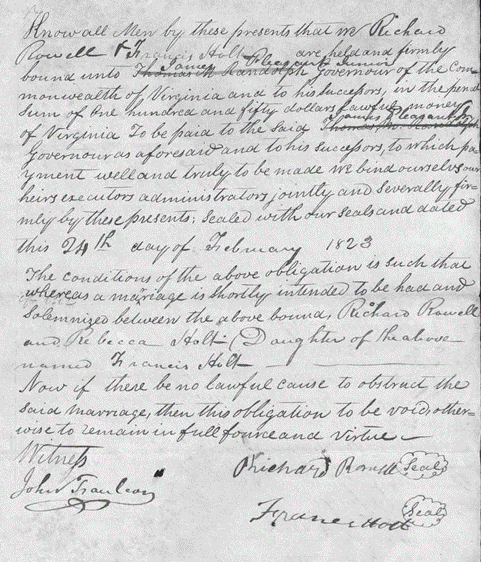 Know all Men by these presents that we Richard
Rowell & Francis Holt are held and firmly
James Pleasants Junior
bound unto Thomas M Randolph governour of the Com-
monwealth of Virginia and to his successors, in the penal
sum of one hundred and fifty dollars Lawful money
James Pleasants Jr
of Virginia To be paid to the said Thomas M. Randolph
Governour as aforesaid and to his successors, to which pa-
yment well and truly to be made we bind ourselves our
heirs executors administrators jointly and severally fir-
mly by these presents; sealed with our seals and dated
this 24th day of February 1823
The conditions of the above obligation is such that
whereas a marriage is shortly intended to be had and
Solemnized between the above bound, Richard Rowell
and Rebecca Holt (Daughter of the above
named Francis Holt
Now if there be no lawful cause to obstruct the
said marriage, then this obligation to be void, other-
wise to remain in full fource and virtue
Witness
Richard Rowell Seal
John
Francis Holt Seal